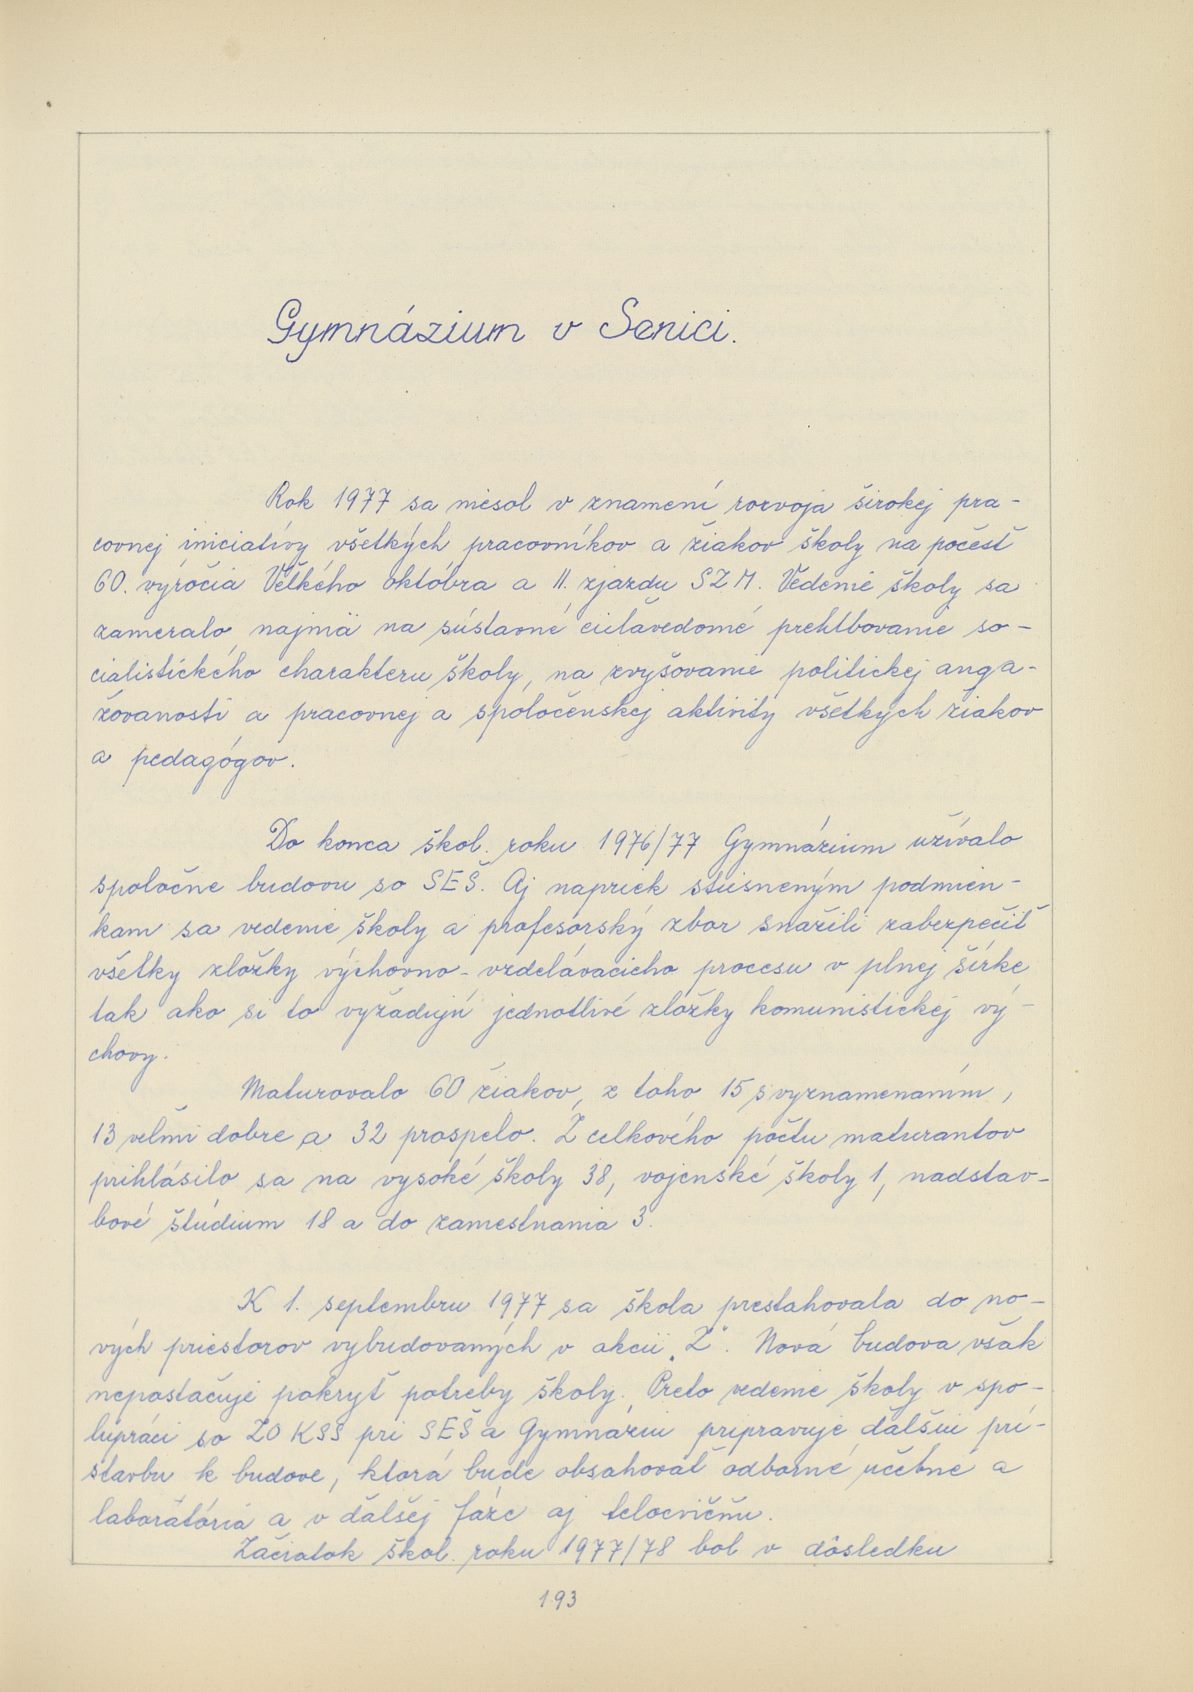 Gymnázium v Senici.
Rok 1977 sa niesol v znamení rozvoja širokej pra-
covnej iniciatívy všetkých pracovníkov a žiakov školy na počesť
60. výročia Veľkého októbra a II. zjazdu SZM. Vedenie školy sa
zameralo najmä na sústavné cieľavedomé prehlbovanie so-
cialistického charakteru školy, na zvyšovanie politickej anga-
žovanosti a pracovnej a spoločenskej aktivity všetkých žiakov
a pedagógov.
Do konca škol. roku 1976/77 Gymnázium užívalo
spoločne budovu so SEŠ. Aj napriek stiesneným podmien-
kam sa vedenie školy a profesorský zbor snažili zabezpečiť
všetky zložky výchovno-vzdelávacieho procesu v plnej šírke
tak ako si to vyžadujú jednotlivé zložky komunistickej vý-
chovy.
Maturovalo 60 žiakov, z toho 15 s vyznamenaním,
13 veľmi dobre a 32 prospelo. Z celkového počtu maturantov
prihlásilo sa na vysoké školy 38, vojenské školy 1, nadstav-
bové štúdium 18 a do zamestnania 3.
K 1. septembru 1977 sa škola presťahovala do no-
vých priestorov vybudovaných v akcii „Z“. Nová budova však
nepostačuje pokryť potreby školy. Preto vedenie školy v spo-
lupráci so ZO KSS pri SEŠ a Gymnáziu pripravuje ďalšiu prí-
stavbu k budove, ktorá bude obsahovať odborné učebne a
laboratória a v ďalšej fáze aj telocvičňu.
Začiatok škol. roku 1977/78 bol v dôsledku
193